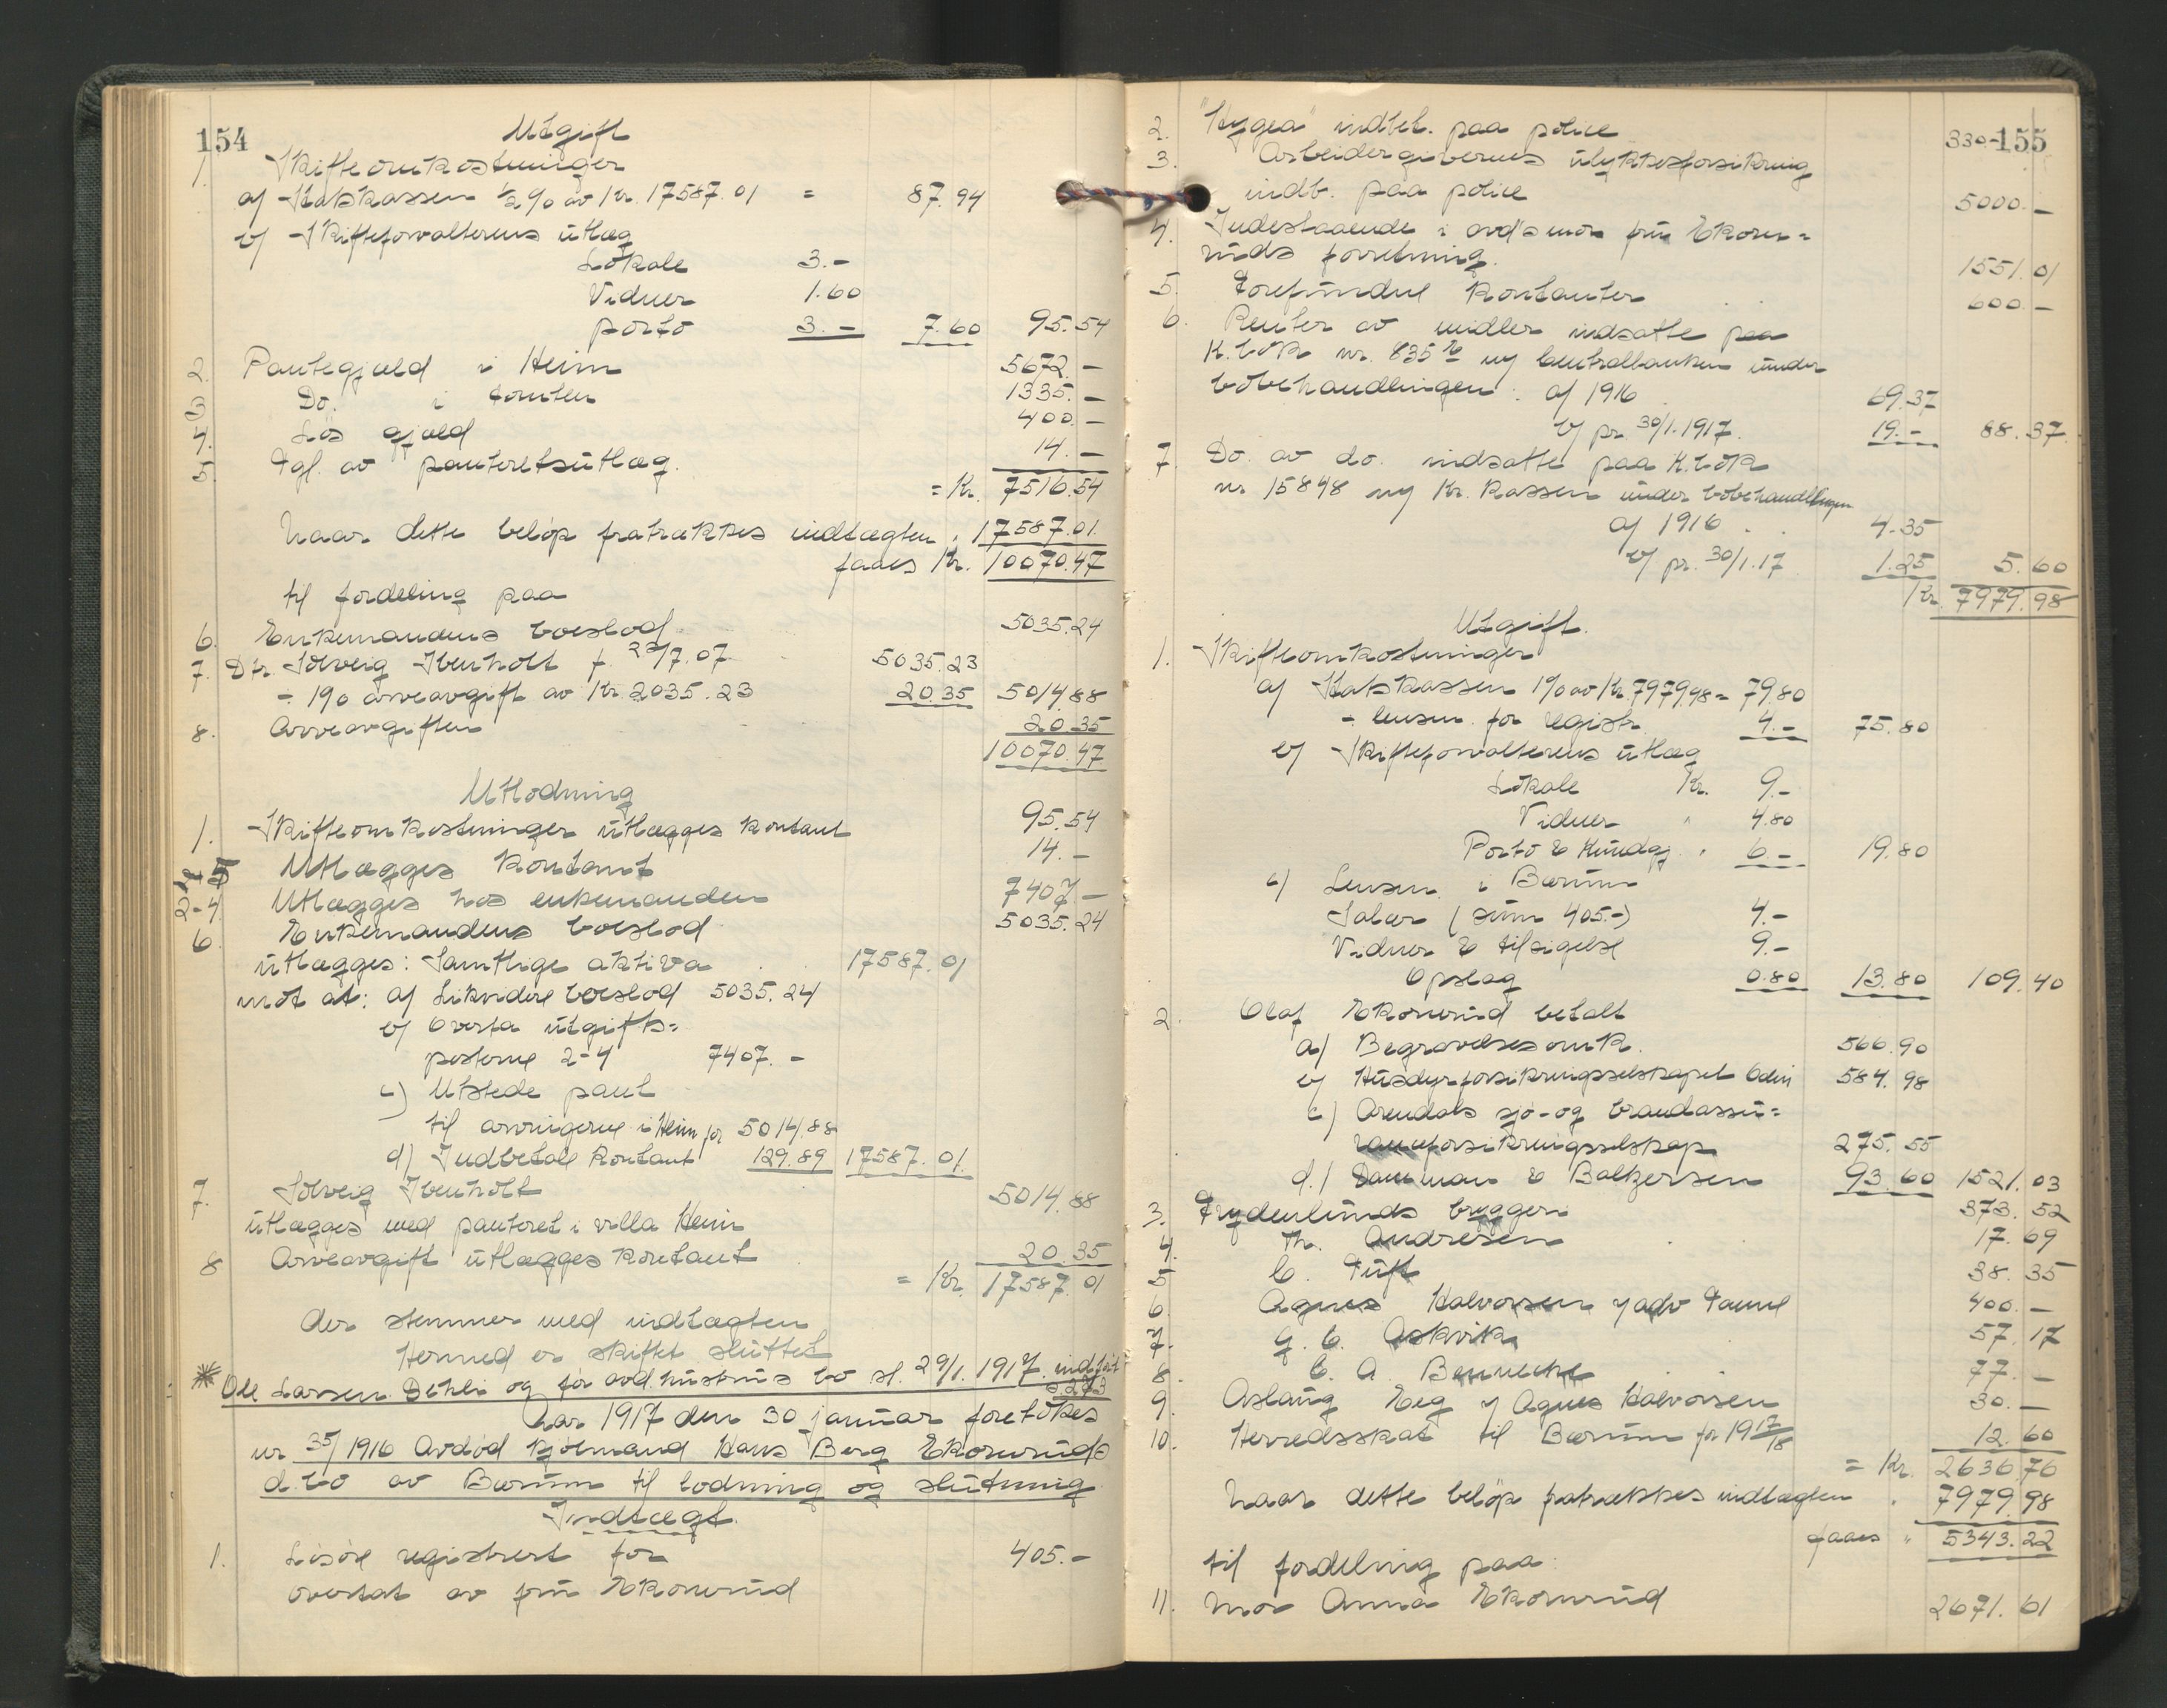 154
Utgift
1. Skifteomkostninger
a) Statskassen ½ % av Kr. 17587.01 = 87.94
b) Skifteforvalterens utlæg
Lokale 3.-
Vidner 1.60
porto 3.- 7.60 95.54
2. Pantegjæld i Heim 5672.-
3 Do. i 1335.-
4. Løs gjæld 400.-
5. Tgl. av panteretsutlæg. 14.-
= Kr. 7516.54
naar dette beløp fratrækkes indtægten " 17587.01
faaes Kr. 10070.47
til fordeling paa
6. Enkemandens boeslod 5035.24
7. Dtr. Solveig Ibenholt f. 22/7.07 5035.23
- 1% arveavgift av Kr. 2035.23 20.35 5014.88
8. Arveavgiften 20.35
10070.47
Utlodning
1. Skifteomkostninger utlægges kontant 95.54
5 Utlægges kontant 14.-
2-4 Utlægges hos enkemanden 7407.-
6. Enkemandens boeslod 5035.24
utlægges: Samtlige aktiva 17587.01
mot at: a) Likvidere boeslod 5035.24
b) Overta utgifts=
posterne 2-4 7407.-
c) Utstede pant
til arvingerne i Heim for 5014.88
d) Indbetale kontant 129.89 17587.01
7. Solveig Ibenholt 5014.88
utlægges med panteret i villa Heim
8 Arveavgift utlægges kontant 20.35
= Kr. 17587.01
der stemmer med indtægten
Hermed er skiftet sluttet
* Ole Larsen Dehli og for avd. hustrus bo sl. 29/1. 1917. indført
s 273
Aar 1917 den 30 januar foretokes
nr 35/1916 Avdød kjølmand Hans Berg Ekornruds
d.bo av Bærum til lodning og slutning
Indtægt.
1. Løsøre registrert for 405.-
overtat av fru Ekornrud
155
2. "Hygea" indbet. paa police 330-
3. Arbeidergivernes ulykkesforsikring
indb. paa police 5000.-
4. Indestaaende i avd's mor fru Ekorn=
ruds forretning. 1551.01
5. Forefundne kontanter 600.-
6. Renter av midler indsatte paa
K.bok nr. 835 ny Centralbanken under
bobehandlingen: a) 1916 69.37
b) pr. 30/1.1917. 19.- 88.37
7. Do. av do. indsatte paa K.bok
nr 15848 ny Kr. kassen under bobehandlingen
a) 1916 4.35
b) pr. 30/1.17 1.25 5.60
Kr. 7979.98
Utgift.
1. Skifteomkostninger
a) Statskassen 1% av Kr. 7979.98 = 79.80
- lensm. for registr. 4.- 75.80
b) Skifteforvalterens utlæg
Lokale Kr. 9.-
Vidner " 4.80
Porto & Kundgj. " 6.- 19.80
c) Lensm. i Bærum
Salær (sum 405.-) 4.-
Vidner & tilsigelse 9.-
Opslag 0.80 13.80 109.40
2. Olaf Ekornrud betalt
a) Begravelsesomk. 566.90
b) Husdyrforsikringsselskapet Odin 584.98
c) Arendals sjø- og brandassu=
ranceforsikringsselskap 275.55
d.) Dammann & Baltzersen 93.60 1521.03
3. Frydenlunds bryggeri 373.52
4. Th. Andresen 17.69
5 C. Tuft 38.35
6. Agnes Halvorsen v/ adv 400.-
7. G. C. Askvik 57.17
8. C. A. Bennecke 77.-
9. Aslaug Heg v/ Agnes Halvorsen 30.-
10. Herredsskat til Bærum for 1917/18 12.60
= Kr. 2636.76
naar dette beløp fratrækkes indtægten " 7979.98
faaes " 5343.22
til fordeling paa:
11. mor Anna Ekornrud 2671.61